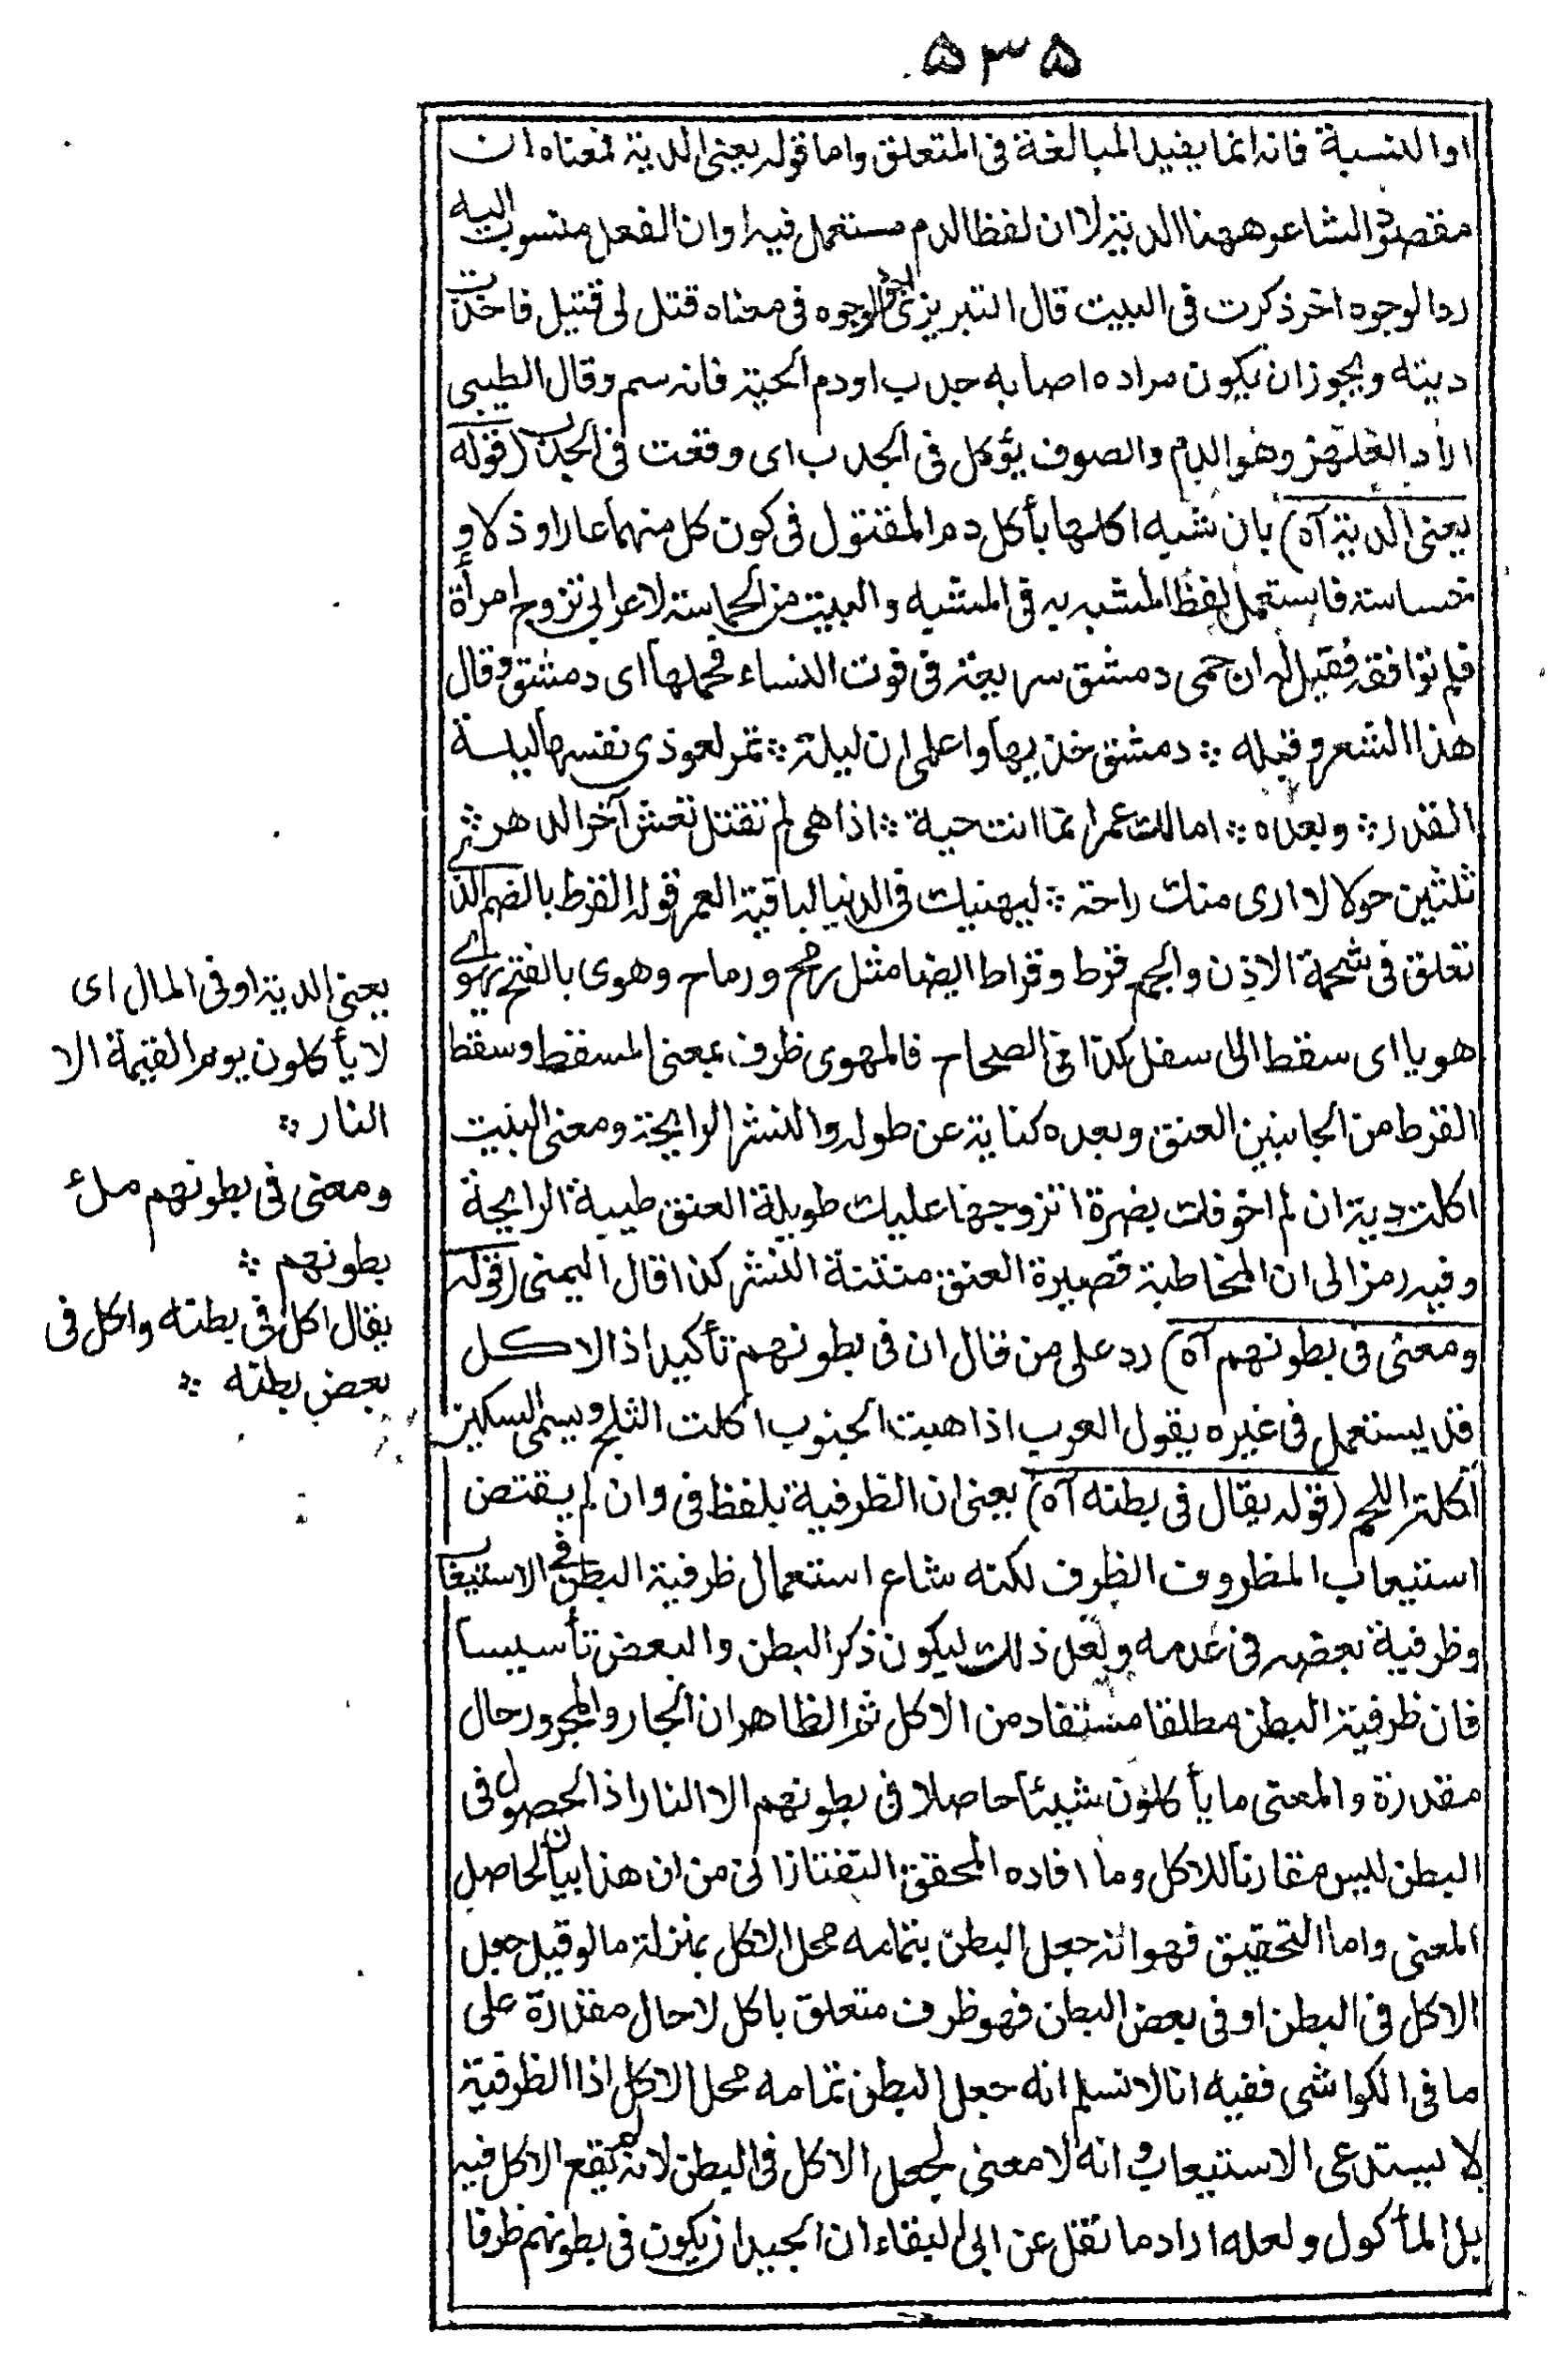 ٥٣٥
او النسبة فانه انما يفيد المبالغة فى المتعلق واما قوله يعنى الدية فمعناه ان
مقصود الشاعر ههنا الدية لا ان لفظ الدم مستعمل فيه او ان الفعل منسوب اليه
رد الوجوه اخر ذكرت فى البيت قال التبريزى الوجوه فى معناه قتل لى قتيل فاخذت
ديته ويجوز ان يكون مراده اصابه جدب او دم الحية فانه سم وقال الطيبى
اراد العلهز وهو الدم والصوف يؤكل فى الجدب اى وقعت فى الجدب (قوله
يعنى الدية آه) بان شبه اكلها بأكل دم المقتول فى كون كل منهما عارا وذلا و
خساسة فاستعمل لفظ المشبه به فى المشبه والبيت من الحماسة لاعرابى تزوج امرأة
فلم توافقه فقيل له ان حمى دمشق سريعة فى فوت النساء فحملها اى دمشق وقال
هذا الشعر وقبله ؞ دمشق خذيها واعلمى ان ليلة ؞ تمر لعوذى نفسها ليلة
القدر ؞ وبعده ؞ امالك عمر انما انت حية ؞ اذا هى لم تقتل تعش آخر الدهر ؞
ثلثين حولا لا ارى منك راحة ؞ ليهنيك فى الدنيا لباقية العمر قوله القرط بالضم الذى
تعلق فى شحمة الاذن والجمع قرط وقراط ايضا مثل رمح ورماح وهوى بالفتح يهوى
هويا اى سقط الى سفل كذا فى الصحاح فالمهوى ظرف بمعنى المسقط وسقط
القرط من الجانبين العنق وبعده كناية عن طوله والنشر الرايحة ومعنى البيت
اكلت دية ان لم اخوفك بضرة اتزوجها عليك طويلة العنق طيبة الرايحة
وفيه رمز الى ان المخاطبة قصيرة العنق منتنة النشر كذا قال اليمنى (قوله
ومعنى فى بطونهم آه) رد على من قال ان فى بطونهم تأكيد اذ الاكل
قد يستعمل فى غيره يقول العرب اذا هبت الجنوب اكلت الثلج ويسمى السكين
آكلة اللحم (قوله يقال فى بطنه آه) يعنى ان الظرفية بلفظ فى وان لم يقتض
استيعاب المظروف الظرف لكنه شاع استعمال ظرفية البطن فى الاستيعاب
وظرفية بعضه فى عدمه ولعل ذلك ليكون ذكر البطن والبعض تأسيسا
فان ظرفية البطن مطلقا مستفاد من الاكل ثم الظاهر ان الجار والمجرور حال
مقدرة والمعنى ما يأكلون شيئا حاصلا فى بطونهم الا النار اذ الحصول فى
البطن ليس مقارنا للاكل وما افاده المحقق التفتازانى من ان هذا بيان لحاصل
المعنى واما التحقيق فهو انه جعل البطن بتمامه محل الاكل بمنزلة ما لو قيل جعل
الاكل فى البطن او فى بعض البطن فهو ظرف متعلق باكل لا حال مقدرة على
ما فى الكواشى ففيه انا لا نسلم انه جعل البطن بتمامه محل الاكل اذا الظرفية
لا يستدعى الاستيعاب وانه لا معنى لجعل الاكل فى البطن لانه لم يقع الاكل فيه
بل المأكول ولعله اراد ما نقل عن ابى البقاء ان الجيد ان يكون فى بطونهم ظرفا
يعنى الدية او فى المال اى
لا يأكلون يوم القيمة الا
النار ؞
ومعنى فى بطونهم ملء
بطونهم ؞
يقال اكل فى بطنه واكل فى
بعض بطنه ؞